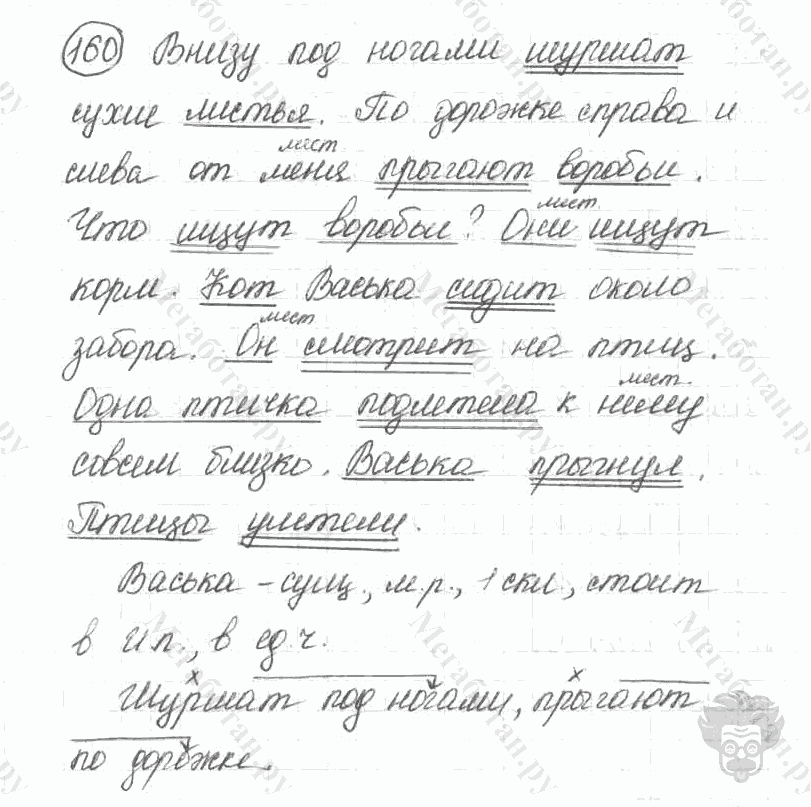 160 Внизу под ногами шуршат
сухие листья. По дорожке справа и
мест
слева от меня прыгают воробьи.
мест.
Что ищут воробьи? Они ищут
корм. Кот Васька сидит около
мест
забора. Он смотрит на птиц.
мест.
Одна птичка подлетела к нему
совсем близко. Васька прыгнул.
Птицы улетели.
Васька – сущ., м.р., 1 скл, стоит
в И п., в ед ч.
х х
Шуршат под ногами, прыгают
по дорожке.
Мегаботан.ру